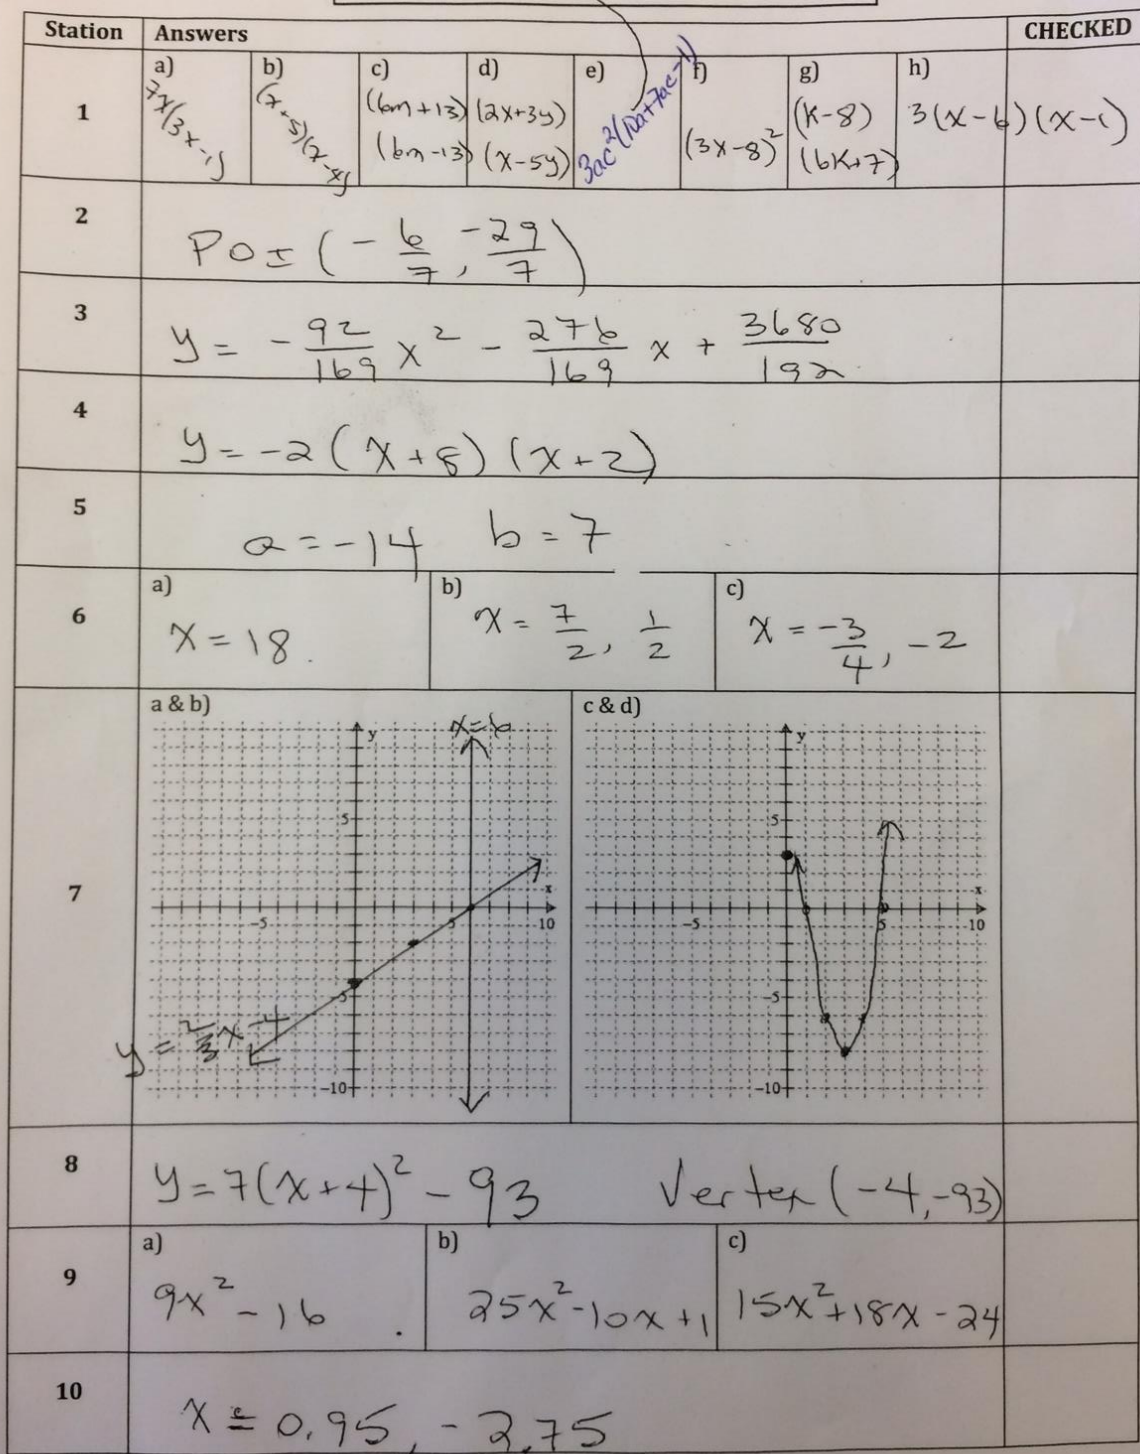 Station Answers CHECKED
1
a) 7x(3x-1)
b) (x+5)(x-4)
c) (6m+13)
(6m-13)
d) (2x+3y)
(x-5y)
e) 3ac²(10a+7ac-1)
f) (3x-8)²
g) (k-8)
(6k+7)
h) 3(x-6)(x-1)
2
POI (-6/7, -29/7)
3
y = -92/169 x² - 276/169 x + 3680/192
4
y = -2(x+8)(x+2)
5
a = -14 b = 7
6
a) x = 18.
b) x = 7/2, 1/2
c) x = -3/4, -2
7
a & b)
x=6
y
5
x
-5 5 10
-5
y = 2/3x-4
-10
c & d)
y
5
x
-5 5 10
-5
-10
8
y = 7(x+4)² - 93 Vertex (-4,-93)
9
a) 9x² - 16
b) 25x²-10x+1
c) 15x²+18x-24
10
x ≐ 0.95, -2.75